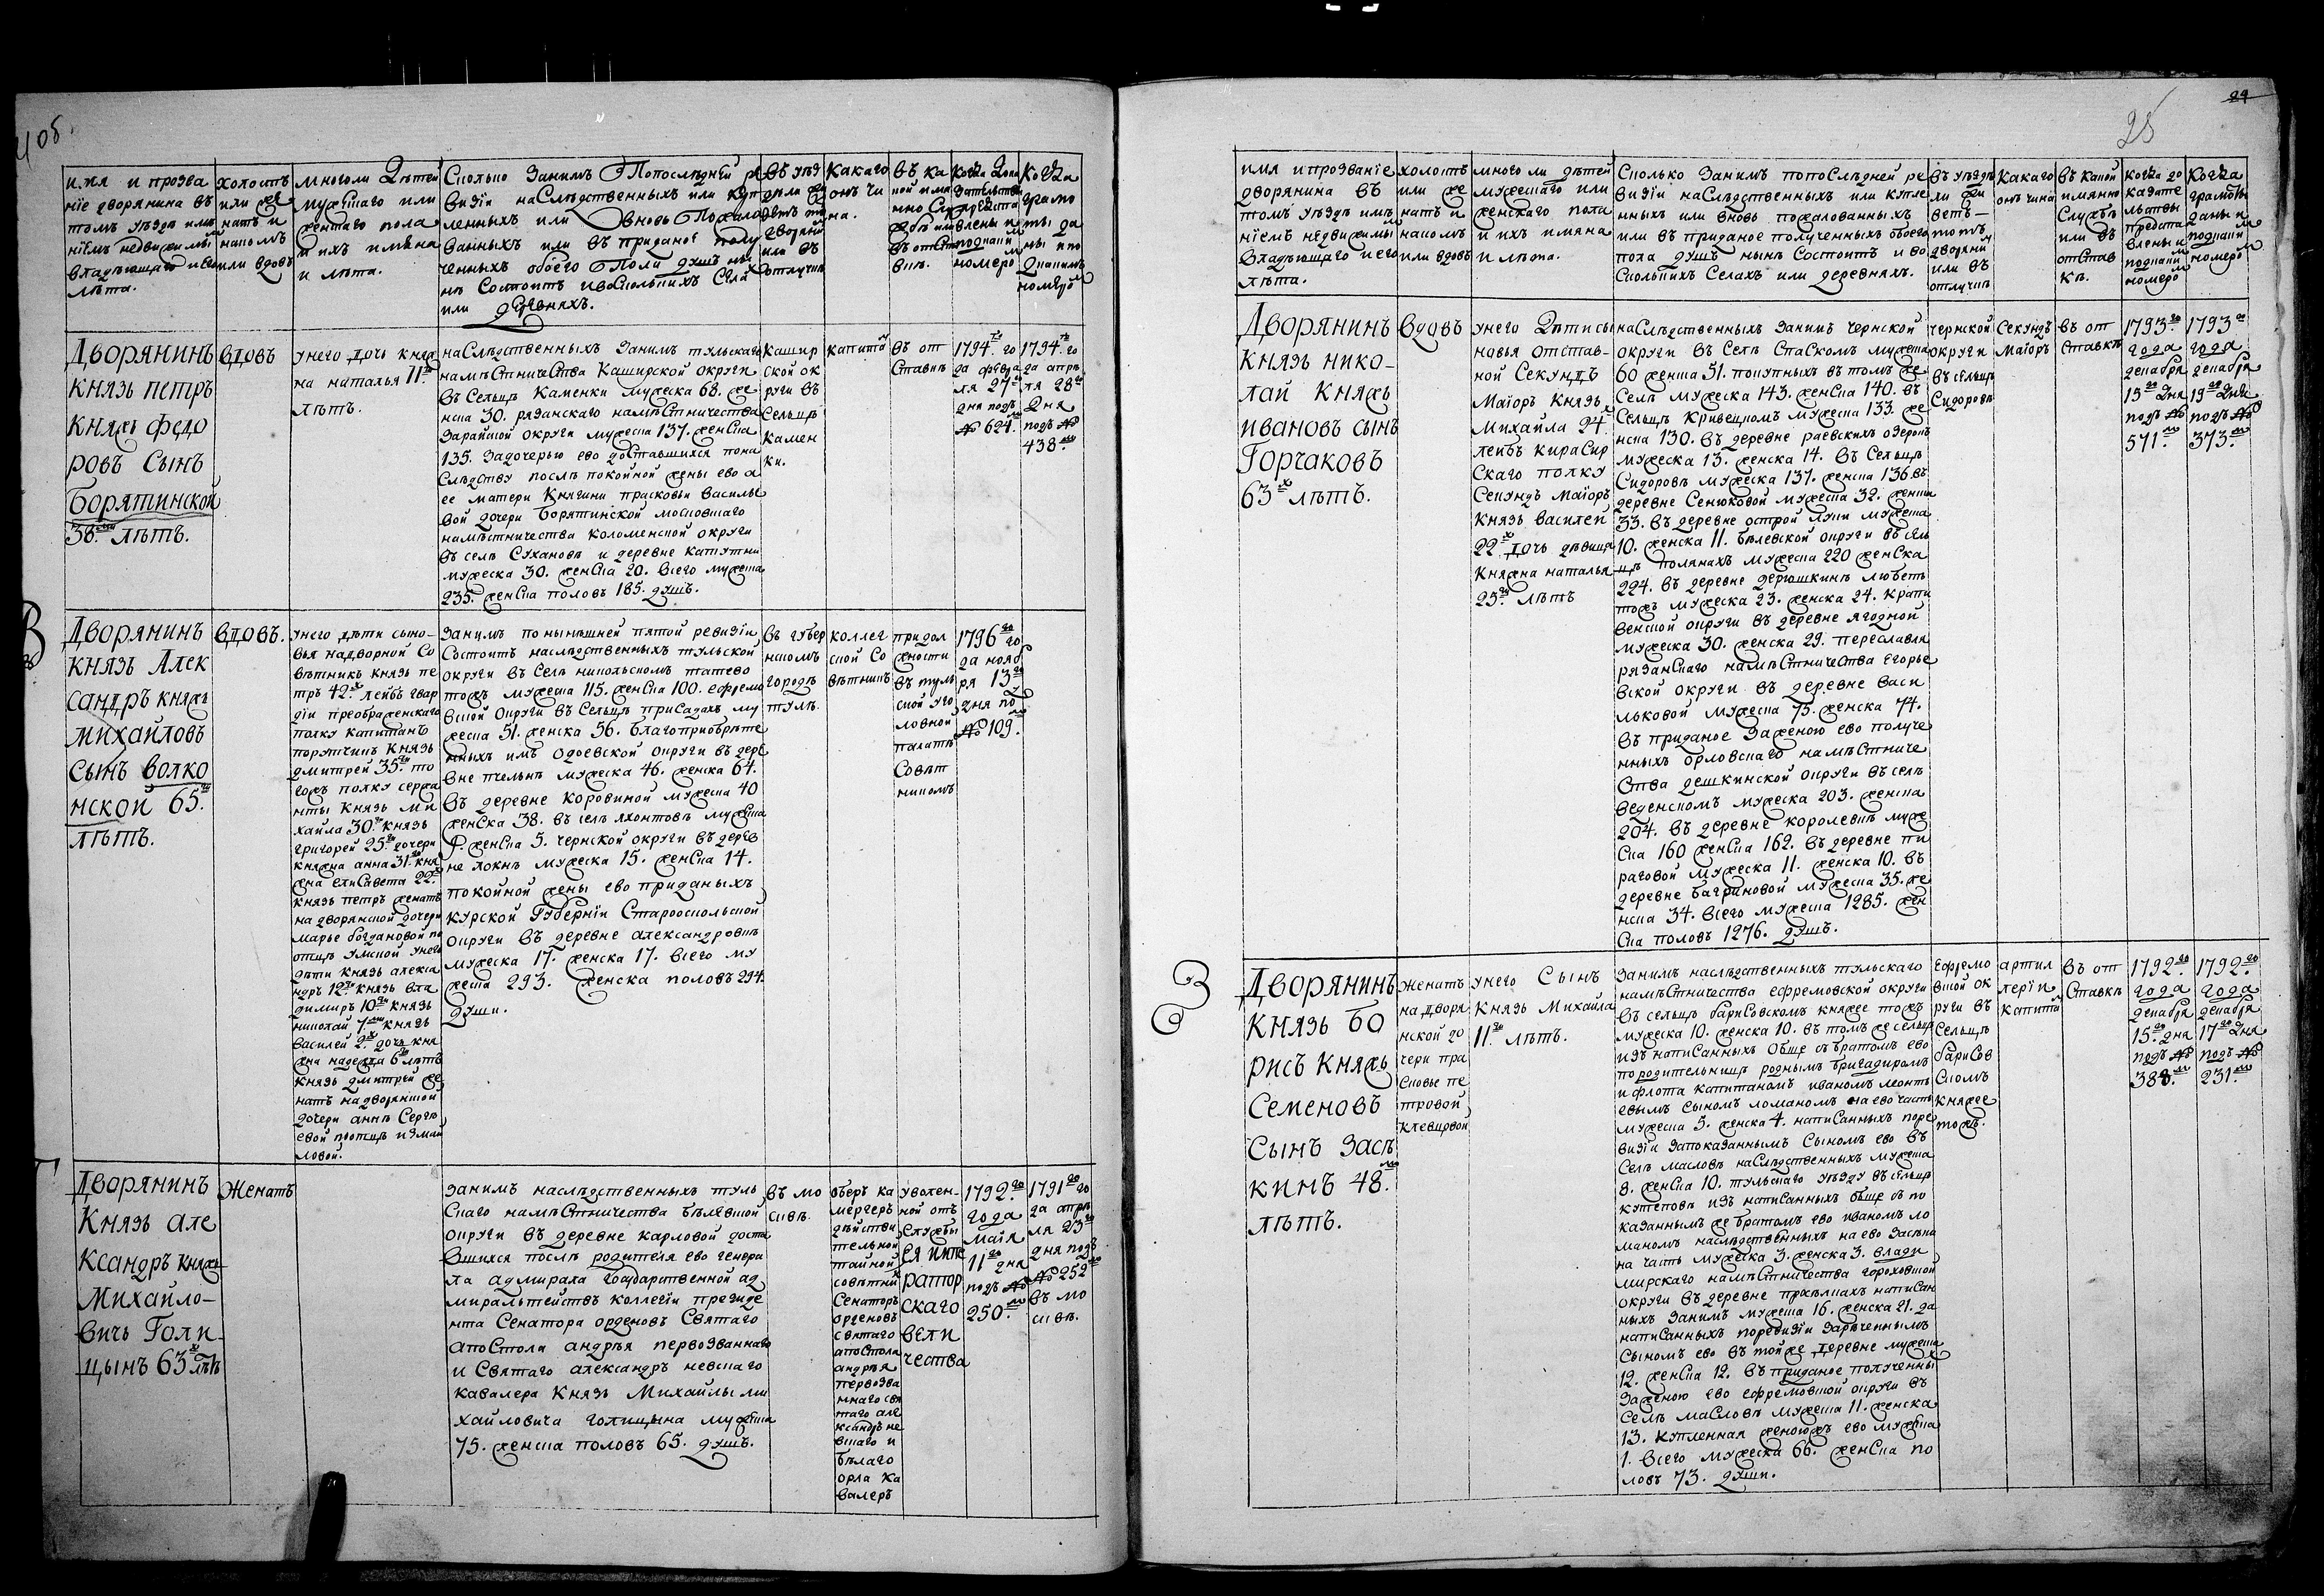 имя и прозва
ніе дворянина въ
томъ уѣздѣ имѣ
ніемъ недвижимы
владѣющаго и ево
лѣта.
холостъ
или же
натъ и
накомъ
или вдовъ
многоли дѣтей
мужескаго или
женскаго пола
и ихъ имяна
и лѣта.
Сколько Занимъ Попослѣдней ре
визіи наСлѣдственныхъ или куп
ленныхъ или вновь Пожало
ванныхъ или въ приданое полу
ченныхъ обоего Пола душъ ны
нѣ Состоитъ и воСколькихъ Села
или деревняхъ.
какаго
онъ чи
на.
Дворянинъ
князь петръ
Княжъ федо
ровъ Сынъ
Борятинской
38. лѣтъ.
вдовъ
унего дочь княж
на наталья 11
лѣтъ.
наСлѣдственныхъ Занимъ тульскаго
намѣСтничеСтва Каширской округи
въ Сельцѣ Каменки мужеска 68. же
нска 30. рязанскаго намѣСтничества
Зарайской округи мужеска 137. женСка
135. Задочерью ево доСтавшихся пона
Слѣдству послѣ покойной жены ево а
ее матери Княгини прасковьи василье
вой дочери Борятинской московскаго
намѣстничества коломенской округи
въ селѣ Сухановѣ и деревне катутни
мужеска 30. женСка 20. всего мужеска
235. женСка половъ 185. душъ.
кашир
ской ок
руги въ
Сельцѣ
камен
ки.
капита
въ от
Ставкѣ
1794 го
да февра
ля 27
дня подъ
№ 624.
1794 го
да апрѣ
ля 28
дня
подъ №
438.
Дворянинъ
князь Алек
сандръ княжъ
михайловъ
сынъ волко
нской 65.
лѣтъ.
вдовъ.
унего дѣти сыно-
вья надворной Со
вѣтникъ князь пе
тръ 42. лейбъ гвар
діи преображенскаго
полку капитанъ
порутчикъ Князь
дмитрей 35. то
гожъ полку сержа
нты Князь Ми
хайла 30. князь
григорей 25. дочери
княжна анна 31. кня
жна елисавета 22.
князь петръ женатъ
на дворянской дочери
марье богдановой по
отцѣ умской унего
дѣти князь алекса
ндръ 12. князь вла
димиръ 10. князь
николай 7. князь
василей 2. дочь кня
жна надежда 6 лѣтъ
князь дмитрей же
натъ на дворянской
дочери анне Серге
евой поотцѣ измай
ловой.
Занимъ по нынѣшней пятой ревизіи
Состоитъ наслѣдственныхъ тульской
округи въ Селѣ никольскомъ татево
тожъ мужеска 115. женСка 100. ефремо
вской округи въ Сельцѣ присадахъ му
жеска 51. женска 56. благоприобрѣте
нныхъ имъ одоевской округи въ дере
вне пчельнѣ мужеска 46. женска 64.
въ деревне Коровиной мужеска 40
женска 38. въ селѣ яхонтовѣ мужеска
9. женСка 5. чернской округи въ дерев
не локнѣ мужеска 15. женСка 14.
покойной жены ево приданыхъ
курской Губерніи Старооскольской
округи въ деревне александровкѣ
мужеска 17. женска 17. всего му
жеска 293. женска половъ 294.
души.
въ губер
нскомъ
городѣ
тулѣ.
коллег
ской Со
вѣтникъ
придол
жности
въ туль
ской уго
ловной
палатѣ
Совѣт
никомъ
1796 го
да нояб
ря 13
дня по
№ 109.
Дворянинъ
Князь але
ксандръ княжъ
Михайло-
вичь Голи
цынъ 63 лѣтъ
Женатъ
занимъ наслѣдственныхъ туль
скаго намѣСтничества бѣлевской
округи въ деревне карловой доста
вшихся послѣ родителя ево генера
ла адмирала государственной ад
миральтействъ коллегіи президе
нта Сенатора орденовъ Святаго
апоСтола андрѣя первозваннаго
и Святаго александръ невскаго
кавалера князь Михайлы ми
хайловича голицына мужеска
75. женска половъ 65. душъ.
въ мо
сквѣ.
оберъ ка
мергеръ
дѣйстви
тельной
тайной
совѣтни
Сенаторъ
орденовъ
святаго
апоСтола
андрѣя
первозва
ннаго свя
таго але
ксандръ не
вскаго и
бѣлаго
орла ка
валеръ
уволен-
ной отъ
службы
ея импе
ратор
скаго
вели
чества
1792.
года
маія
11 дня
подъ №
250.
1791 го
да апрѣ
ля 23
дня подъ
№ 252
въ мо
сквѣ.
25
имя ипрозваніе
дворянина въ
томъ уѣздѣ имѣ
ніемъ недвижимы
владѣющаго и его
лѣта.
холостъ
или же
натъ и
накомъ
или вдовъ
много ли дѣтей
мужескаго или
женскаго пола
и ихъ имяна
и лѣта.
Сколько Занимъ попоСлѣдней ре
визіи наСлѣдственныхъ или купле
нныхъ или вновь пожалованныхъ
или въ приданое полученныхъ обоего
пола душъ нынѣ Состоитъ и во
Сколькихъ Селахъ или деревняхъ.
въ уѣздѣ
ли жи
ветъ
тотъ
дворяни
или въ
отлучкѣ
какаго
онъ чина
въ какой
имянно
Службѣ
или въ
отСтав
кѣ.
Когда до
казате
льствы
предста
влены и
подкаки
номеро
Когда
грамоты
даны и
подкаки
номеро
Дворянинъ
князь нико-
лай Княжъ
ивановъ сынъ
Горчаковъ
63 лѣтъ.
Вдовъ
унего дѣти сы
новья отстав-
ной Секундъ
Маіоръ князь
Михайла 24.
лейбъ кирасир
скаго полку
Секундъ Маіоръ
князь василей
22. дочь дѣвица
Княжна наталья
25. лѣтъ
наСлѣдственныхъ Занимъ чернской
округи въ Селѣ СпаСкомъ мужеска
60 женска 51. покупныхъ въ томъ же
Селѣ мужеска 143. женСка 140. въ
Сельцѣ Кривецкомъ мужеска 133. же
нска 130. въ деревне раевскихъ озеркѣ
мужеска 13. женска 14. въ Сельцѣ
Сидоровѣ мужеска 137. женска 136 въ
деревне Сенюковой мужеска 32. женска
33. въ деревне острой луки мужеска
10. женска 11. бѣлевской округи въ сель
цѣ полянахъ мужеска 220 женСка
224. въ деревне дерюшкинѣ любеть
тожъ мужеска 23. женска 24. крапи
венской округи въ деревне ягодной
мужеска 30. женска 29. переславля
рязанСкаго намѣСтничеСтва егорье
вской округи въ деревне васи
льковой мужеска 75. женска 74.
въ приданое Заженою ево получе
нныхъ орловскаго намѣСтниче
Ства дешкинской округи въ селѣ
веденскомъ мужеска 203. женска
204. въ деревне королевкѣ муже
Ска 160 женСка 162. въ деревне пи
раговой мужеска 11. женска 10. въ
деревне багриновой мужеска 35. же
нска 34. всего мужеска 1285. жен
Ска половъ 1276. душъ.
чернской
округи
въ сельцѣ
Сидоровѣ
Секундъ
Маіоръ
въ от
ставкѣ
1793.
года
декабря
15 дня
подъ №
571.
1793
года
декабря
19 дня
подъ №
373.
З
Дворянинъ
князь бо
рисъ Княжъ
Семеновъ
Сынъ Засѣ
кинъ 48.
лѣтъ.
женатъ
надворя
нской до
чери пра
сковье пе
тровой
клевцовой
унего Сынъ
князь Михайла
11. лѣтъ.
Занимъ наслѣдственныхъ тульскаго
намѣСтничества ефремовской округи
въ сельцѣ бариСовскомъ княжее тожъ
мужеска 10. женска 10. въ томъ же сельцѣ
изъ напиСанныхъ обще събратомъ ево
породительницѣ роднымъ бригадиромъ
и флота капитаномъ иваномъ леонть
евымъ сыномъ ломаномъ на ево часть
мужеска 5. женска 4. напиСанныхъ поре
визіи запоказаннымъ Сыномъ ево въ
Селѣ масловѣ наСлѣдственныхъ мужеска
8. женСка 10. тульскаго уѣзду въ сельцѣ
кутеповѣ изъ написанныхъ обще съ по
казаннымъ же братомъ ево иваномъ ло
маномъ наслѣдственныхъ на ево Засѣкина
на часть мужеска 3. женска 3. влади
мирскаго намѣСтничества гороховской
округи въ деревне прокѣпихѣ напиСан
ныхъ Занимъ мужеска 16. женска 21. да
напиСанныхъ поревизіи Зарѣченнымъ
Сыномъ ево въ тойже деревне мужеска
12. женСка 12. въ приданое полученны
заженою ево ефремовской округи въ
Селѣ маСловѣ мужеска 11. женска
13. купленная женоюжъ ево мужеска
1. всего мужеска 66. женСка по
ловъ 73. души.
Ефремо
вской ок
руги въ
Сельцѣ
бариСов
Скомъ
княжее
тожъ.
артил
леріи
капита
въ от
Ставкѣ
1792.
года
декабря
15. дня
подъ №
388.
1792.
года
декабря
17 дня
подъ №
231.